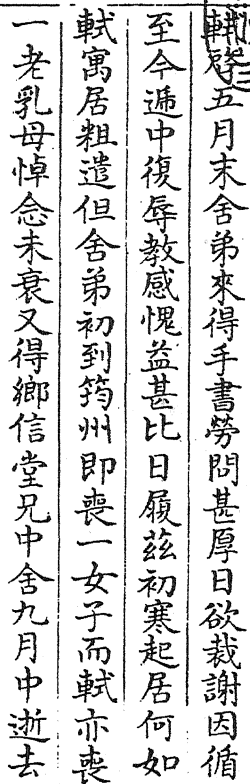 軾啓五月末舍弟來得手書勞問甚厚日欲裁謝因循
至今遞中復辱教感愧益甚比日履茲初寒起居何如
軾寓居粗遣但舍弟初到筠州即喪一女子而軾亦喪
一老乳母悼念未衰又得鄉信堂兄中舍九月中逝去